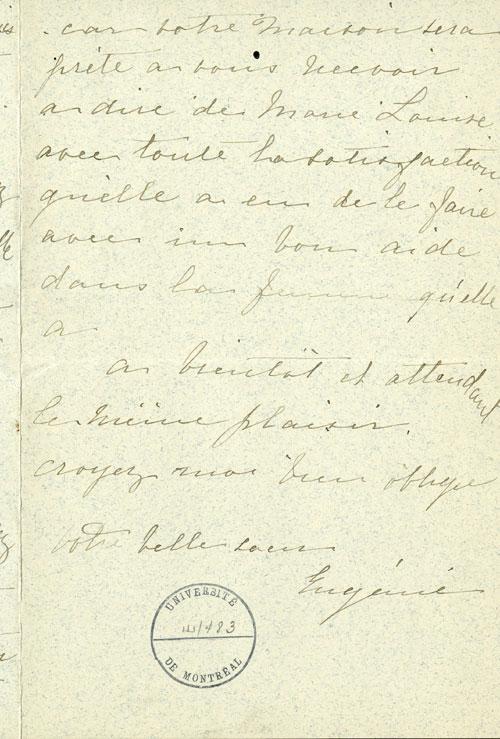 car votre Maison sera
prête a vous recevoir
a dire de Marie Louise,
avec toute la satisfaction
qu'elle a eu de le faire
avec un bon aide
dans la femme qu'elle
a
a bientôt et attendant
le même plaisir.
croyez moi bien obligé
votre belle soeur
Eugénie
UNIVERSITÉ
DE MONTRÉAL